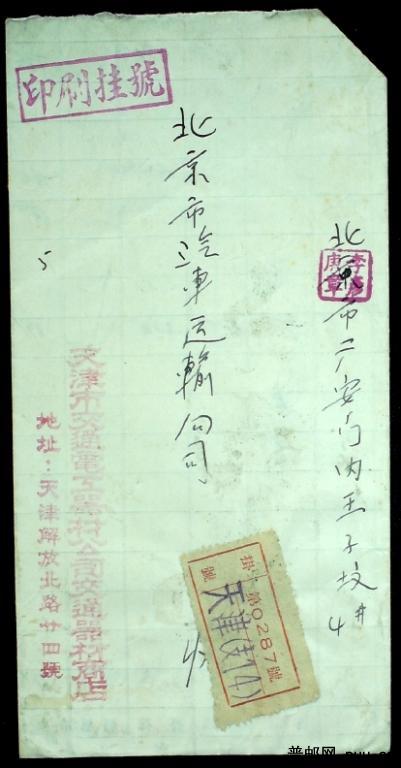 印刷挂號
北京市广安门内王子坟4#
李彦
庚章
北京市汽車运輸公司
收
5
掛號 第0287號
天津(支14)
天津市交通電工器材公司交通器材商店
地址：天津解放北路廿四號
普邮网